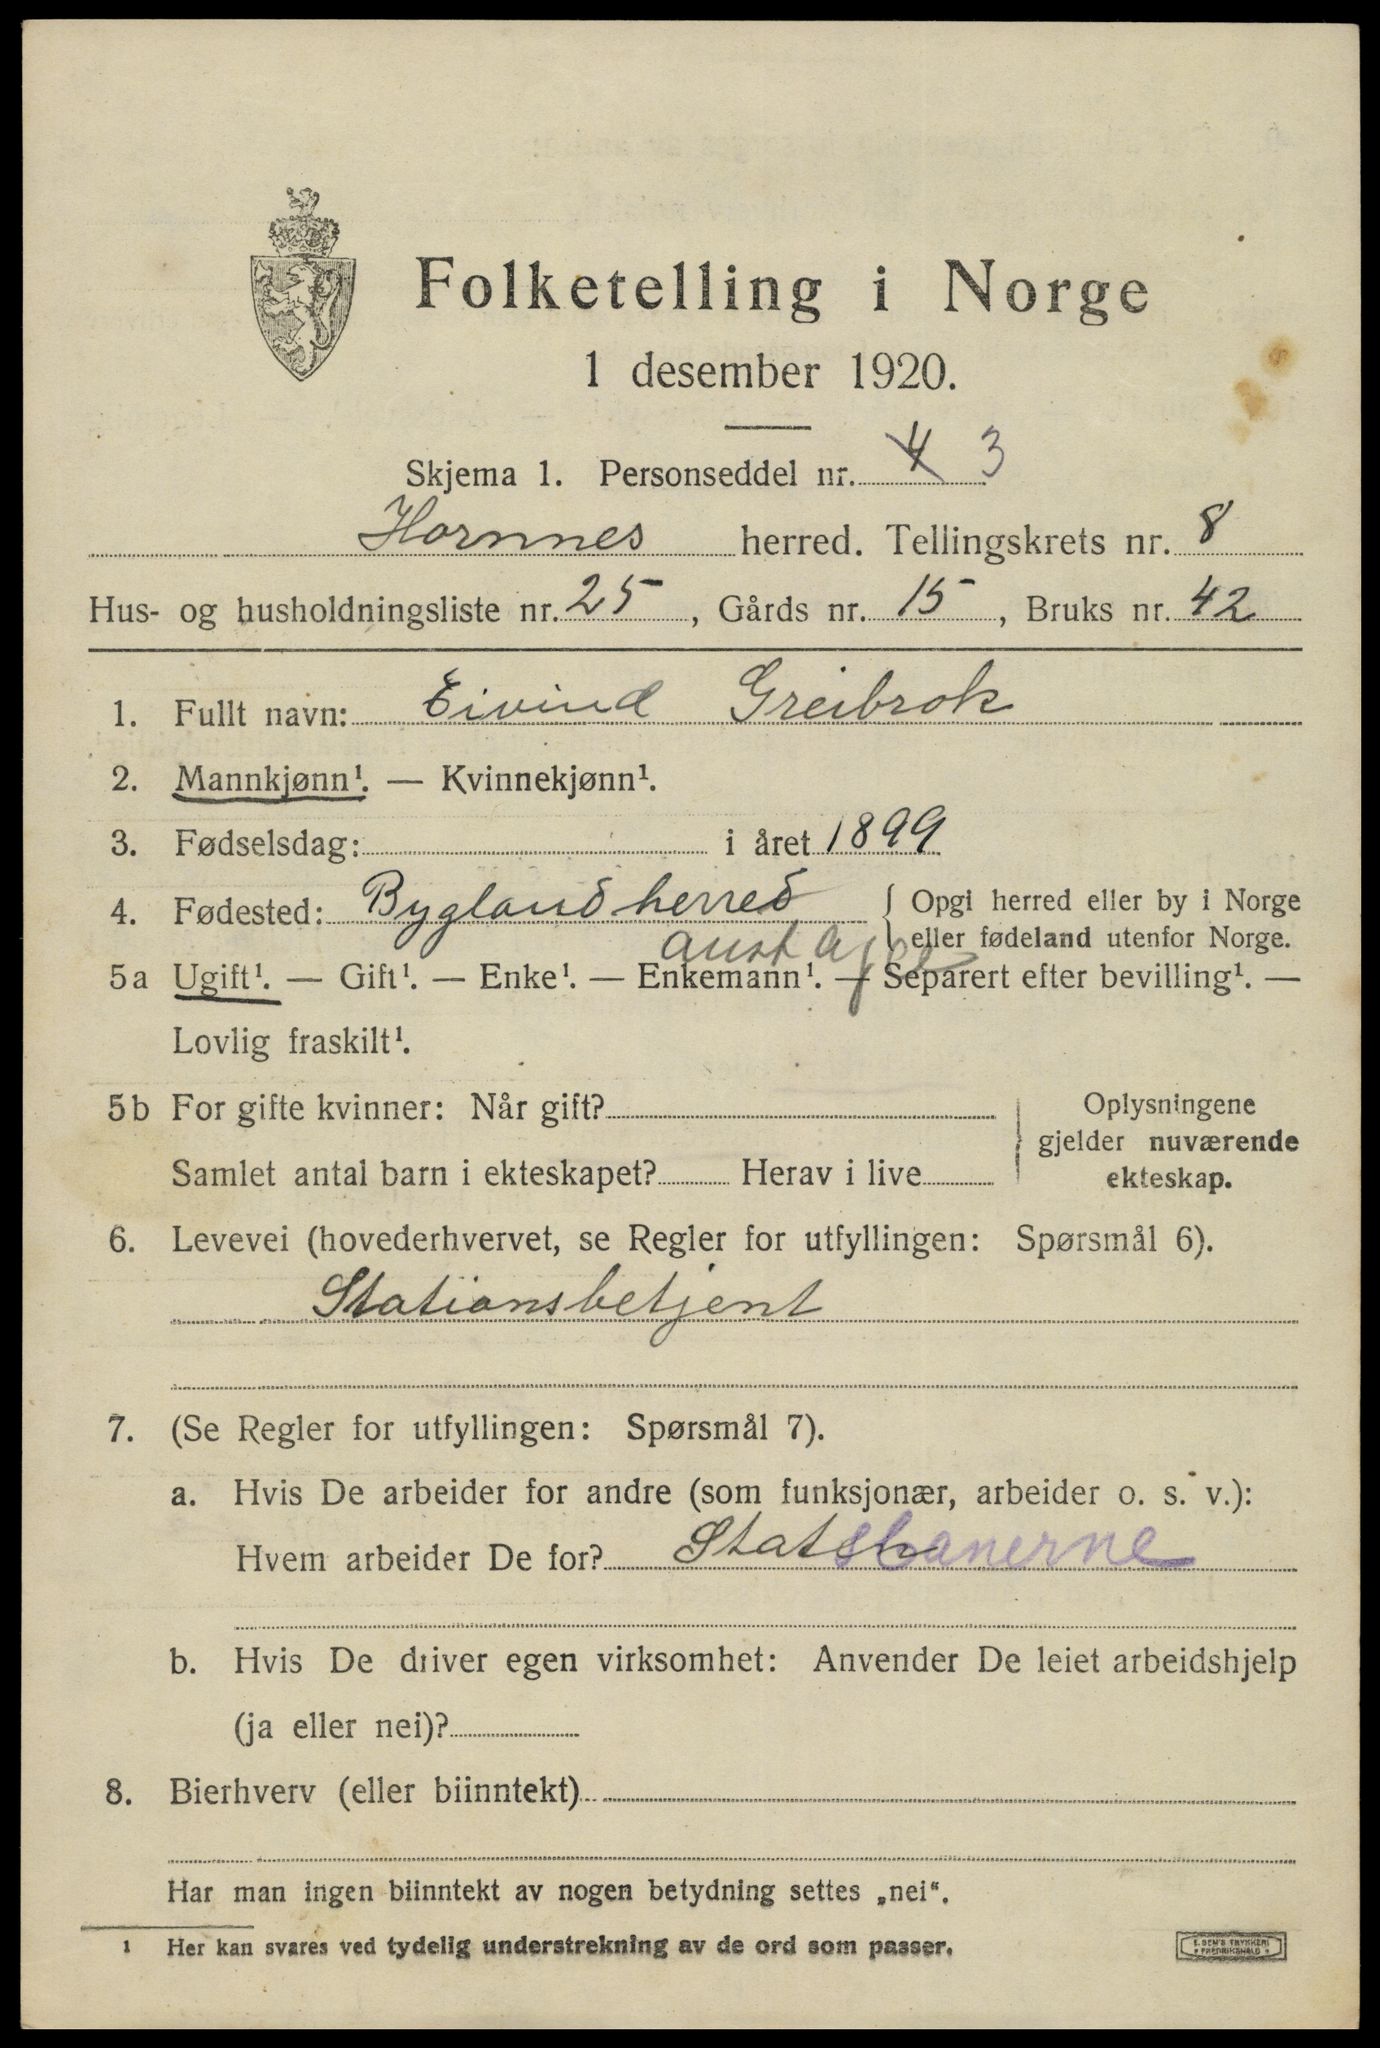 Folketelling i Norge
1 desember 1920.
Skjema 1. Personseddel nr. 4 3
Hornnes herred. Tellingskrets nr. 8
Hus- og husholdningsliste nr. 25, Gårds nr. 15, Bruks nr. 42
1. Fullt navn: Eivind Greibrok
2. Mannkjønn¹. — Kvinnekjønn¹.
3. Fødselsdag: i året 1899
4. Fødested: Bygland herred { Opgi herred eller by i Norge
eller fødeland utenfor Norge.
aust Agder
5a Ugift¹. — Gift¹. — Enke¹. — Enkemann¹. — Separert efter bevilling¹. —
Lovlig fraskilt¹.
5b For gifte kvinner: Når gift?
Samlet antal barn i ekteskapet? Herav i live
Oplysningene
gjelder nuværende
ekteskap.
6. Levevei (hovederhvervet, se Regler for utfyllingen: Spørsmål 6).
Stationsbetjent
7. (Se Regler for utfyllingen: Spørsmål 7).
a. Hvis De arbeider for andre (som funksjonær, arbeider o. s. v.):
Hvem arbeider De for? Statsbanerne
b. Hvis De driver egen virksomhet: Anvender De leiet arbeidshjelp
(ja eller nei)?
8. Bierhverv (eller biinntekt)
Har man ingen biinntekt av nogen betydning settes „nei".
1 Her kan svares ved tydelig understrekning av de ord som passer.